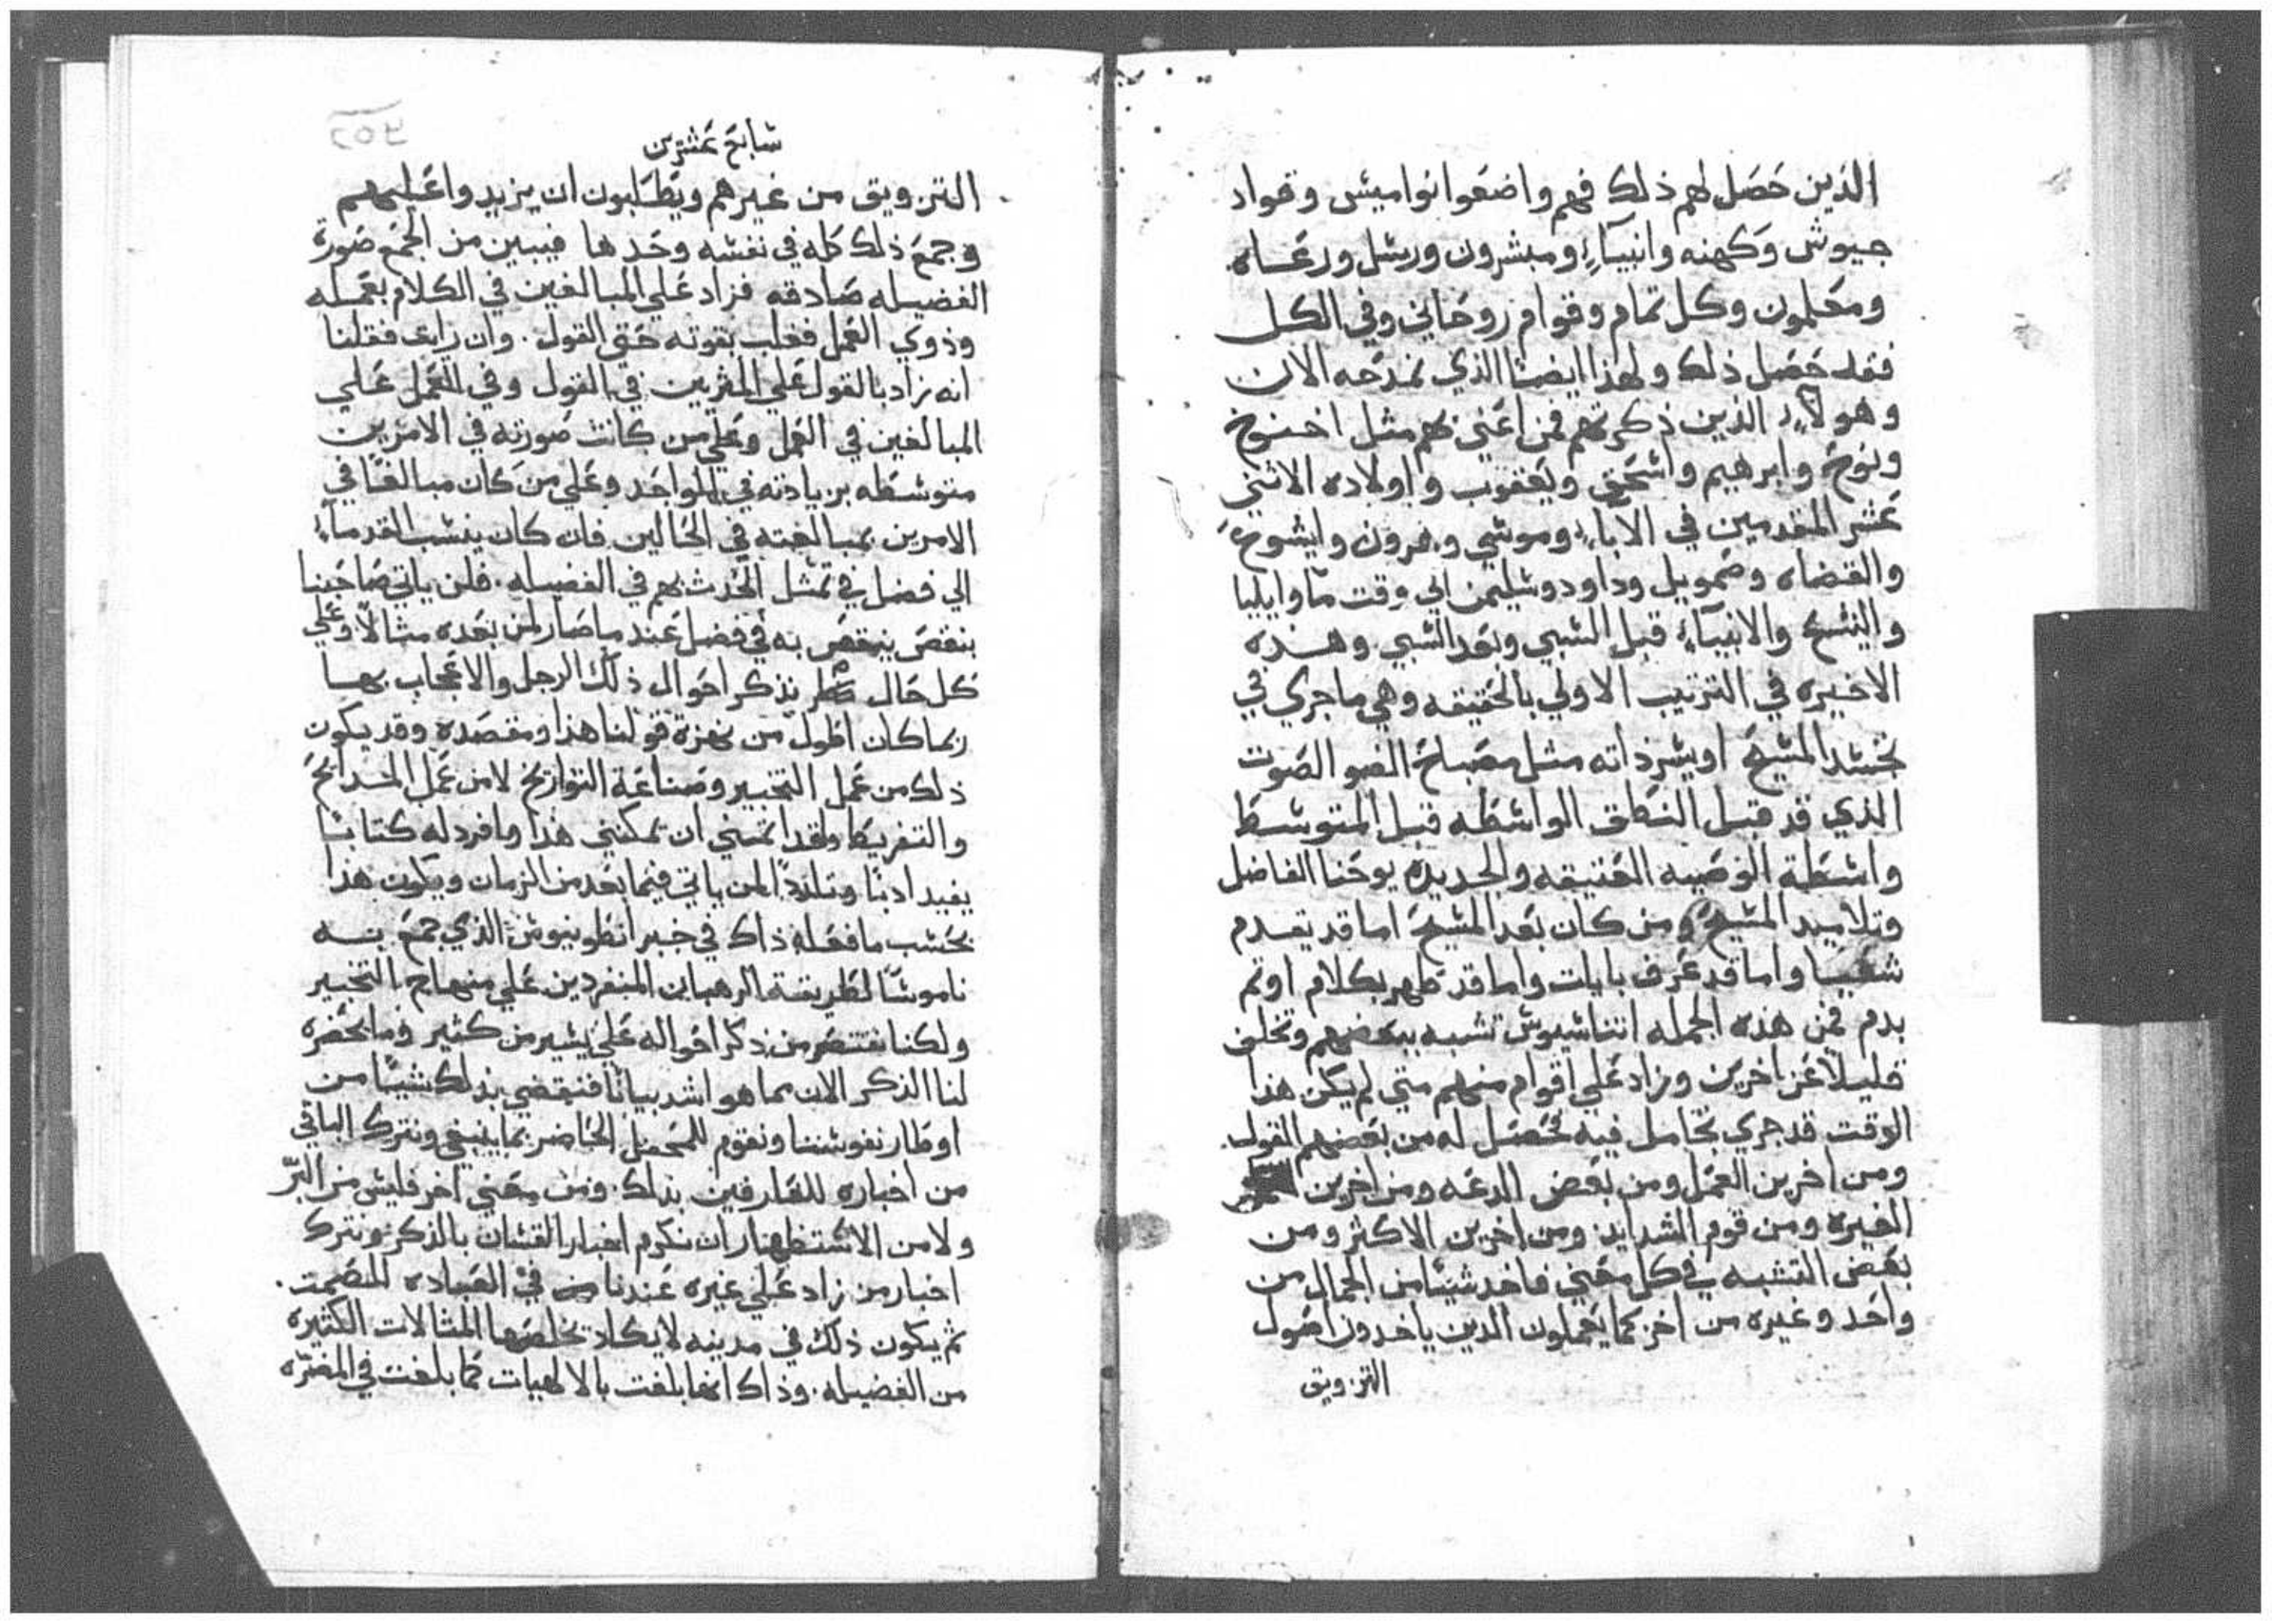 الذين حَصَل لهم ذلك فهم واضعَوا نواميس وقواد
جيوش وكهنه وانبيآء ومبشرون ورسل ورعَاه
ومعَلمون وكل تمام وقوام روحَاني وفي الكل
فقد حَصَل ذلك ولهذا ايضا الذي نمدحه الان
وهولآء الذين ذكرتهم فمن اعَني بهم مثل اخنوخ
ونوحَ وابرهيم واسحَق ويعَقوب واولاده الاثني
عَشر المقدمين في الاباء وموسي وهرون وايشوعَ
والقضاه وصَمويل وداود وسليمن الي وقت مّا وايليا
واليسع والانبيآء قبل السبي وبعَد السبي وهذه
الاخيره في الترتيب الاولي بالحَقيقه وهي ماجري في
تجسّد المسيحَ او بسر ذاته مثل مصَباحَ الضو الصَوت
الذي قد قبل النطق الواسطَه قبل المتوسط
واسَطَة الوصَيه العَتيقه والجديده يوحَنا الفاضل
وتلاميد المسيحَ ومن كان بعَد المسيحَ اما قد تقدم
شعَبا واما قد عَرف بايات واما قد ظهر بكلام او تم
بدم فمن هذه الجمله اتناسيوس تشبه ببعَضهم وتخلف
قليلا عَن اخرين وزاد عَلي اقوام منهم متي لم يكن هذا
الوقت قد جري تحَامل فيه فحَصَل له من بعَضهم القول
ومن اخرين العَمل ومن بعَض الدعَه ومن اخرين
الغيره ومن قوم الشدايد ومن اخرين الاكثر ومن
بعَض التشبه في كل معَني فاخد شيئا من الجمال من
واحَد وغيره من اخر كما يعَملون الدين ياخدون اصَول
التزويق
سابع عَشرين
التزويق من غيرهم ويطَلبون ان يزيدوا عَليهم
وجمعَ ذلك كله في نفسه وحَدها فيبين من الجمع صَورة
الفضيله صَادقه فزاد عَلي المبالغين في الكلام بعَمله
وذوي العَمل فغلب بقوته حَتي القول. وان رايت فقلنا
انه زاد بالقول عَلي المثرين في القول وفي العَمل عَلي
المبالغين في العَمل وعَلي من كانت صَورته في الامرين
متوسَطه بزيادته في الواحَد وعَلي من كان مبالغًا في
الامرين بمبالغته في الحَالين فان كان ينسب القدمآء
الي فضل في تمثل الحَدث بهم في الفضيله. فلن ياتي صَاحَبنا
بنقصَ ينتقصَ به في فضل عَند ما صَار لمن بعَده مثالاً وعَلي
كل حَال بذكر احَوال ذلك الرجل والاعَجاب بهسا
ربما كان اطَول من نهزة قولنا هذا ومقصَده وقد يكون
ذلك من عَمل التخبير وصَناعَة التواريخ لا من عَمل المدايح
والتفريط ولقد اتمني ان يمكنني هذا وافرد له كتابا
يفيد ادبًا وتلذذًا لمن ياتي فيما بعَد من الزمان ويكون هذا
بحَسب ما فعَله ذاك في خبر انطَونيوس الذي جمعَ به
ناموسًا لطَريقة الرهبان المنفردين عَلي منهاج التخبير
ولكنا نقتصَر من ذكر احَواله عَلي يسير من كثير وما يحَضره
لنا الذكر الان مما هو اشد بيانًا فنقضي بذلك شيئا من
اوطَار نفوسنا ونقوم للمحَفل الحَاضر بما ينبغي ونترك الباقي
من اخباره للعَارفين بذلك. ومن معَني اخر فليس من البّر
ولا من الاستظهار ان نكرم اخبار الفسان بالذكر ونترك
اخبار من زاد عَلي غيره عَندنا في العَباده المصَمت.
ثم يكون ذلك في مدينه لا يكاد تخلصَها المثالات الكثيره
من الفضيله. وذاك انها بلغت بالالهيات كما بلغت في المفترّه